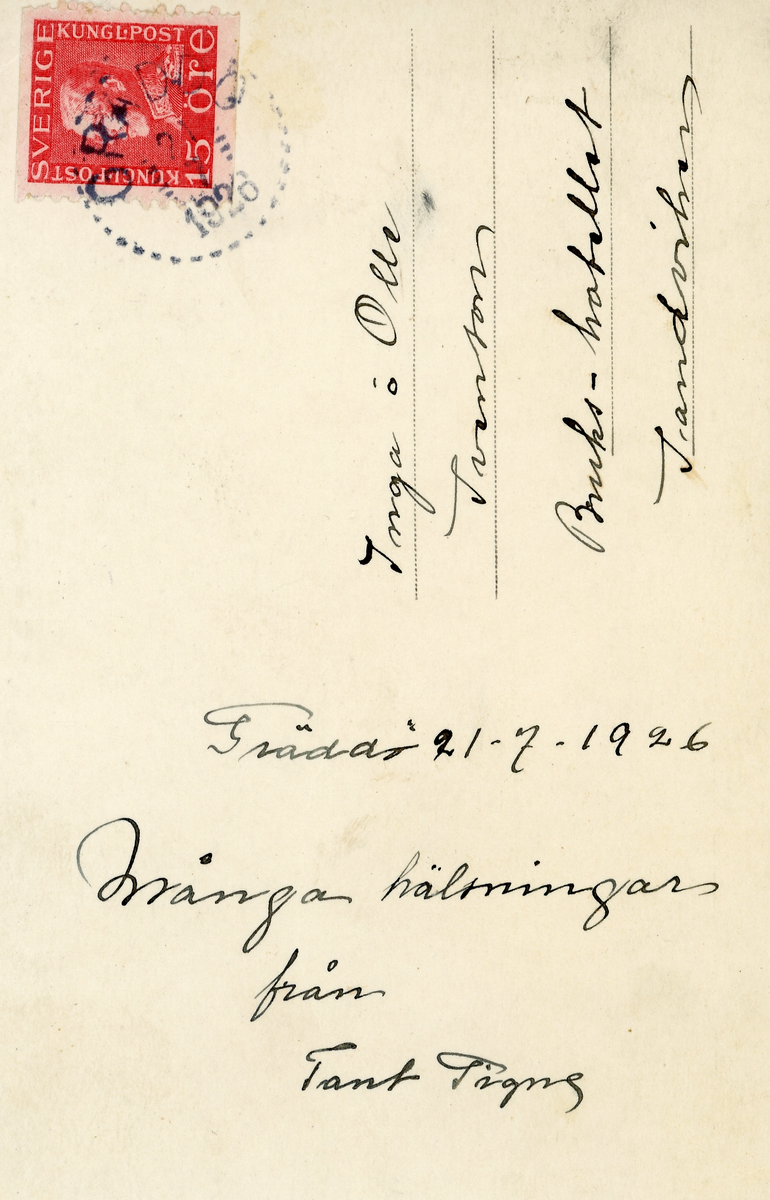 SVERIGE
KUNGL·POST
15 ÖRE
KUNGL·POST
GRÄDDÖ
1926
Inga ö Olle
Svenson
Bruks-hotellet
Sandviken
Gräddö 21-7-1926
Många hälsningar
från
Tant Signe